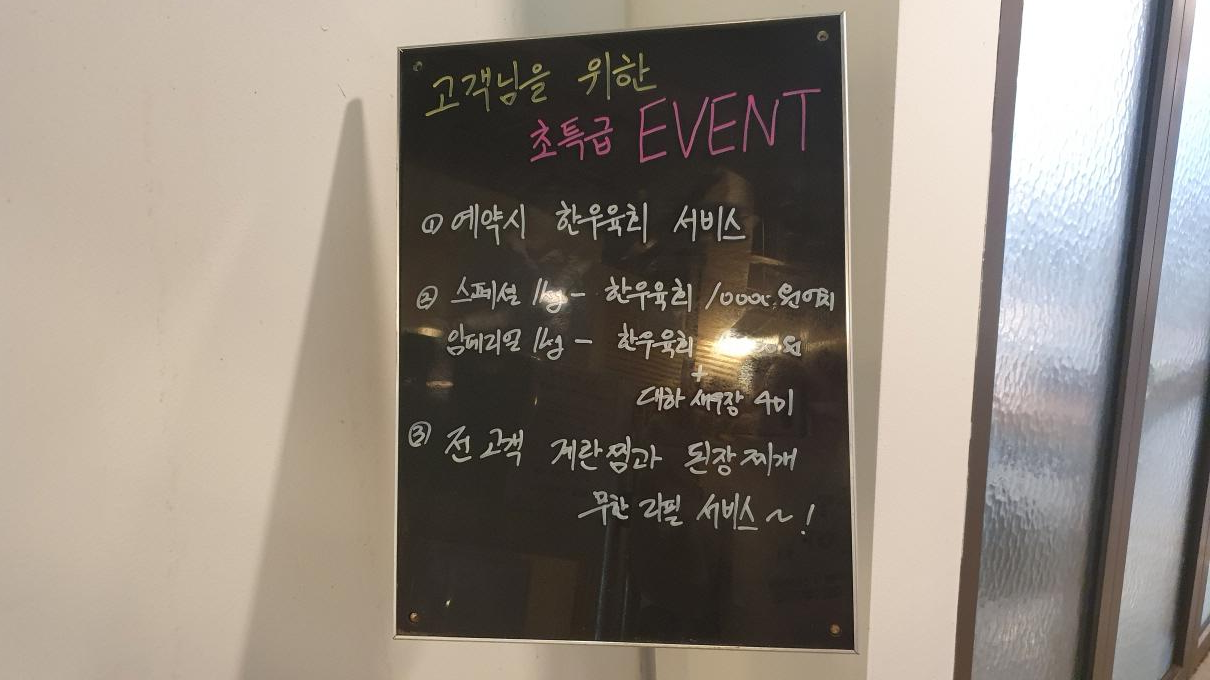 고객님을 위한
초특급 EVENT
① 예약시 한우육회 서비스
② 스페셜 1kg - 한우육회 10000.원어치
암페리얼 1kg - 한우육회
+
대하 새우장 4미
③ 전 고객 계란찜과 된장찌개
무한 리필 서비스~!